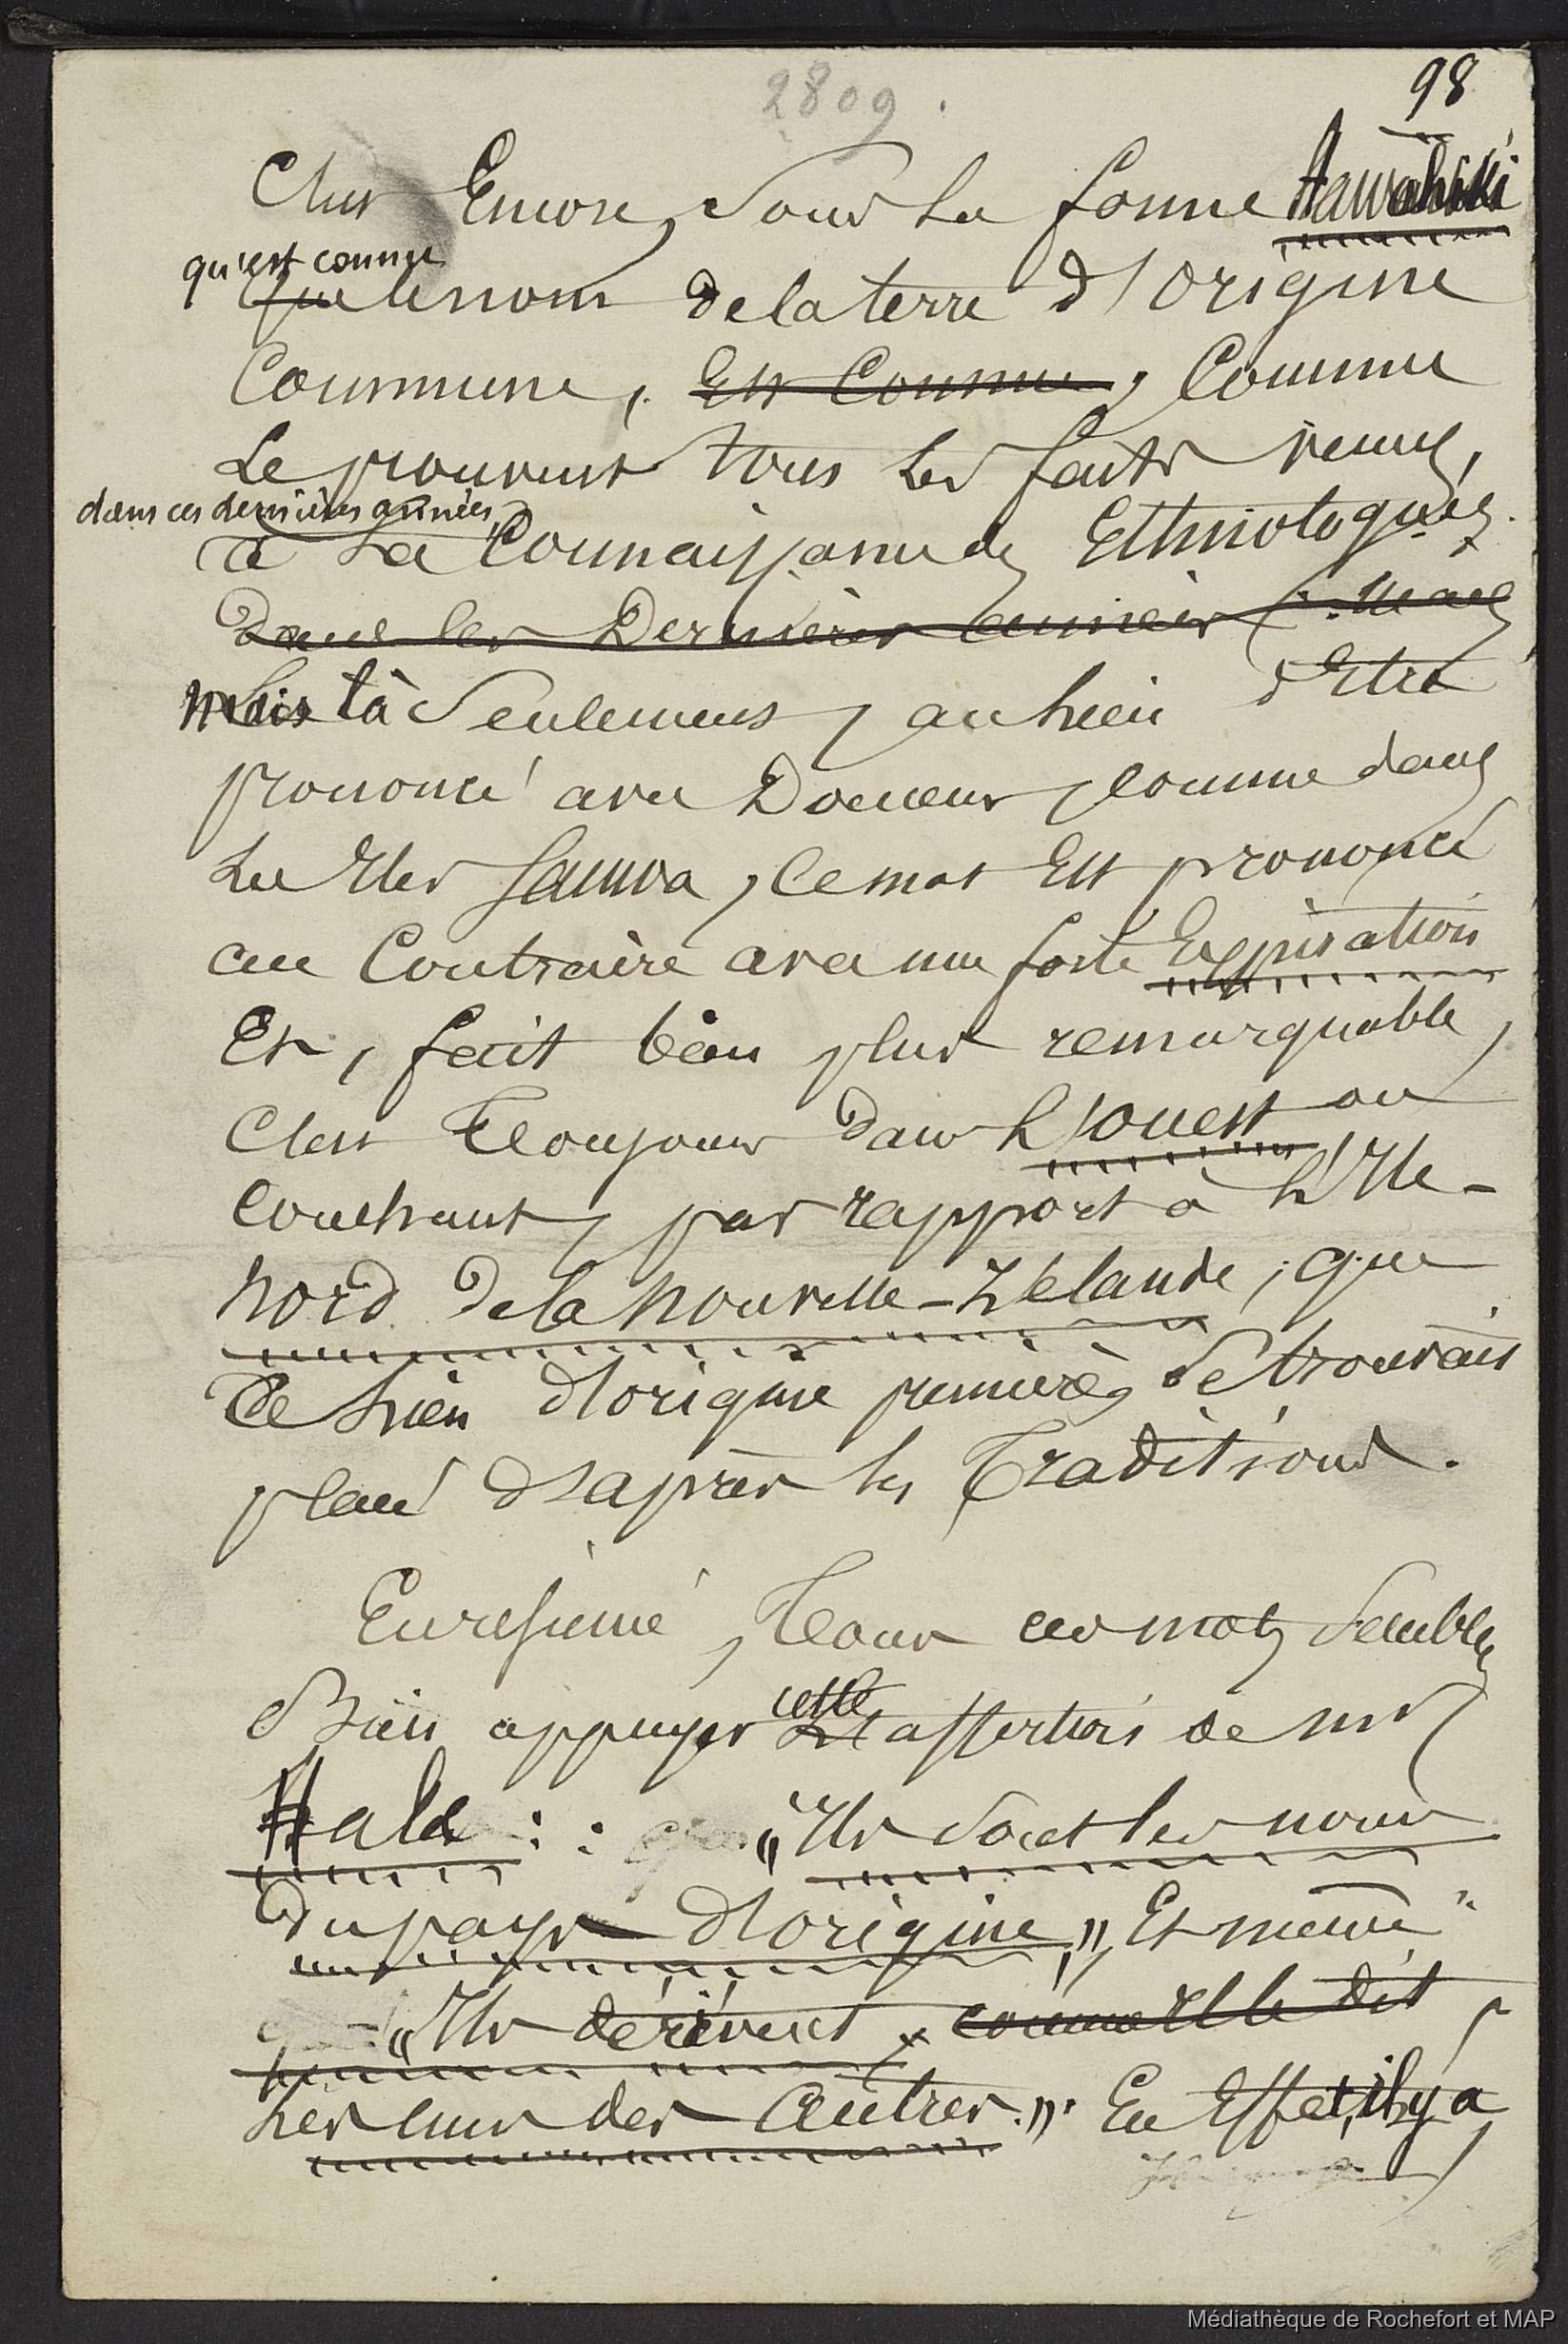 2809.
98
C'est Encore, sous la forme Hawahiki
qu'est connu
que le nom de la terre d'Origine
Commune, Est Connue, Comme
Le prouvent tous les faits venus,
dans ces dernières années,
à La Connaissance des Ethnologues.
Dans les Dernières années. Mais
Mais là Seulement, au lieu d'Etre
prononcé avec Douceur, comme dans
Les Iles Samoa, Ce mot Est prononcé
au Contraire avec une forte Expiration
Et, fait bien plus remarquable,
C'est Toujours dans L'Ouest ou
Couchant, par rapport à L'Ile-
Nord de la Nouvelle-Zélande, que
Ce Lieu d'origine première, Se trouvait
placé d'après les Traditions.
En résumé, Tous ces mots Semblent
Bien appuyer cette assertion de Mr
Hale : : "Ils Sont les noms
Du pays d'Origine", Et même
"Ils dérivent, comme Il le dit,
Les uns des Autres.". En Effet, il y a
Médiathèque de Rochefort et MAP